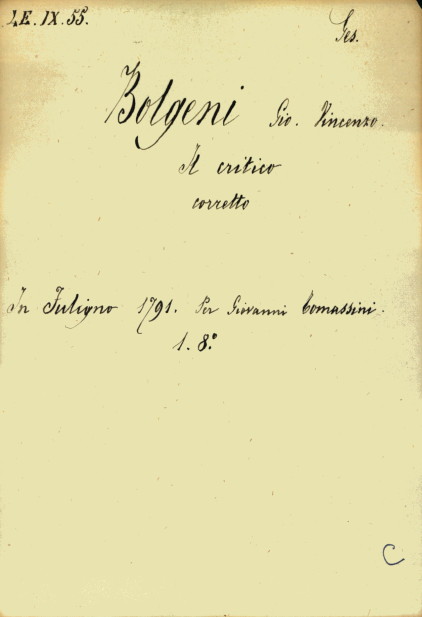 LE. IX. 55.
Ges.
Bolgeni Gio. Vincenzo.
Il critico
corretto
In Fuligno 1791. Per Giovanni Tomassini.
1. 8.°
C